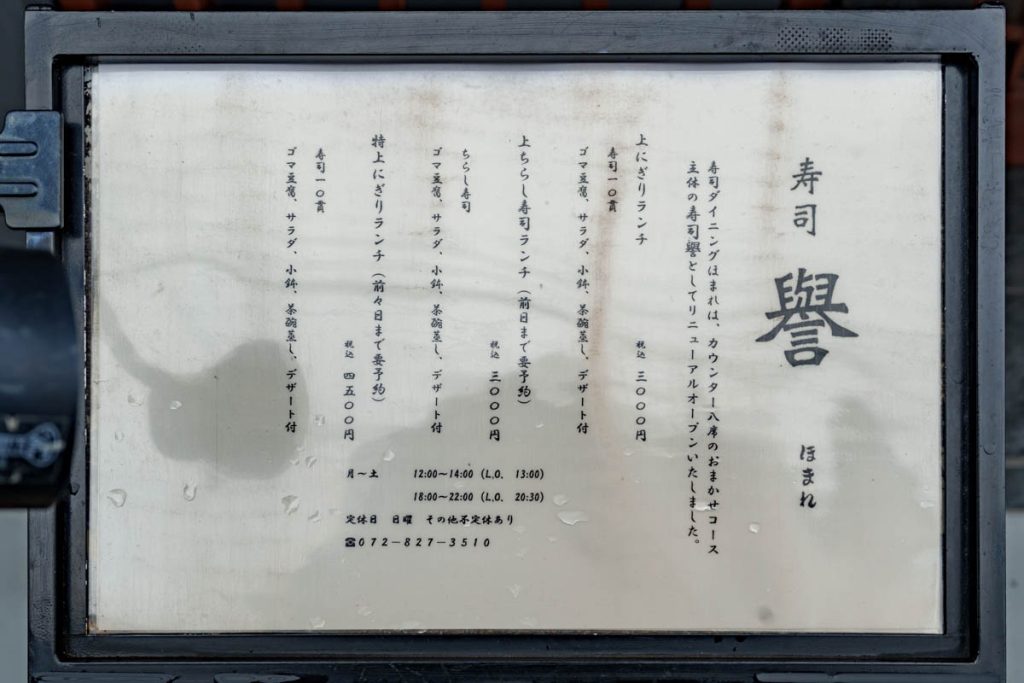 寿司 譽 ほまれ
寿司ダイニングほまれは、カウンター八席のおまかせコース
主体の寿司譽としてリニューアルオープンいたしました。
上にぎりランチ 税込 三〇〇〇円
寿司一〇貫
ゴマ豆腐、サラダ、小鉢、茶碗蒸し、デザート付
上ちらし寿司ランチ（前日まで要予約）
税込 三〇〇〇円
ちらし寿司
ゴマ豆腐、サラダ、小鉢、茶碗蒸し、デザート付
特上にぎりランチ（前々日まで要予約）
税込 四五〇〇円
寿司一〇貫
ゴマ豆腐、サラダ、小鉢、茶碗蒸し、デザート付
月〜土 12:00〜14:00 (L.O. 13:00)
18:00〜22:00 (L.O. 20:30)
定休日 日曜 その他不定休あり
☎072-827-3510